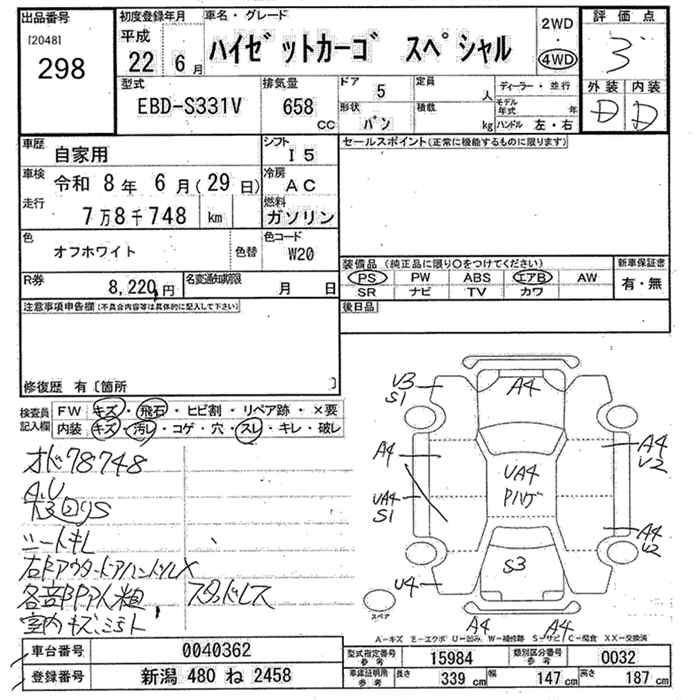 出品番号
[2048]
298
初度登録年月
平成
22 6月
車名・グレード
ハイゼットカーゴ スペシャル
2WD
・
4WD
評価点
3
外装 内装
D D
型式
EBD-S331V
排気量
658 CC
ドア 5
形状 バン
定員 人
積載 kg
ディーラー・並行
モデル年式 年
ハンドル 左・右
車歴
自家用
シフト
I5
車検
令和 8年 6月(29日)
冷房
AC
走行
7万8千748 km
燃料
ガソリン
色
オフホワイト
色替
色コード
W20
R券
8,220円
名変通知期限
月 日
セールスポイント(正常に機能するものに限ります)
装備品(純正品に限り○をつけてください)
PS PW ABS エアB AW
SR ナビ TV カワ
新車保証書
有・無
後日品
注意事項申告欄(不具合内容等は具体的に記入して下さい)
修復歴 有〔箇所 〕
検査員
記入欄
FW キズ・飛石・ヒビ割・リペア跡・×要
内装 キズ・汚レ・コゲ・穴・スレ・キレ・破レ
オド78748
シートキレ
スタッドレス
室内キズ、ヨゴレ
U3
S1
A4
A4
UA4
S1
U4
UA4
Pハゲ
S3
A4
U2
A4
U2
A4
A4
スペア
A−キズ E−エクボ U−凹み W−補修跡 S−サビ C−腐食 XX−交換済
車台番号 0040362
登録番号 新潟 480 ね 2458
型式指定番号 参考 15984
類別区分番号 参考 0032
車庫証明用 参考 長さ 339cm 幅 147cm 高さ 187cm